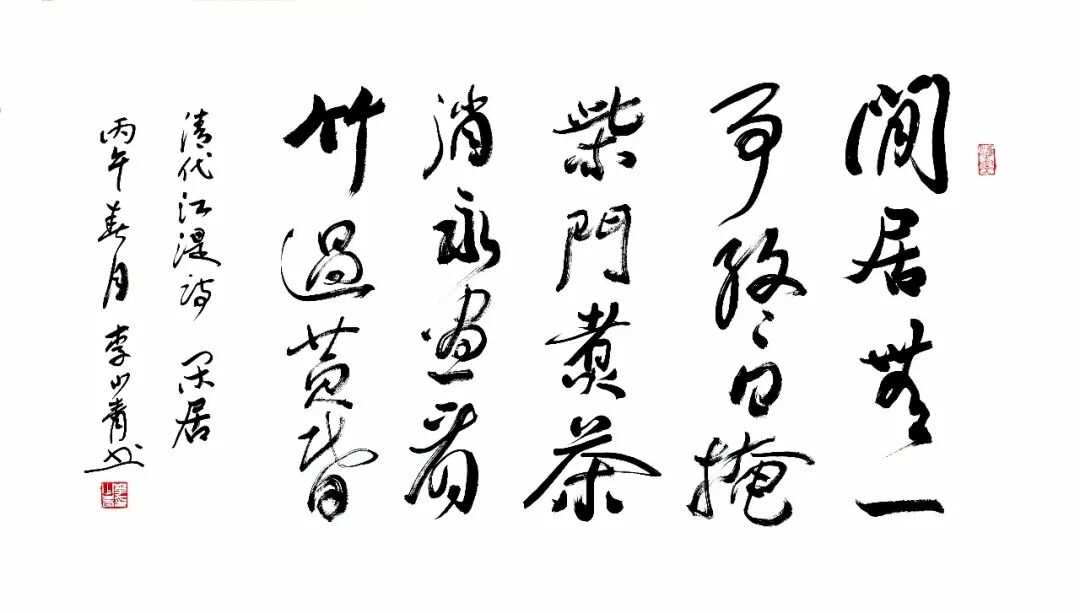 閒居無一
事終日掩
柴門煮茶
消永晝看
竹過黄昏
清代江湜诗 闲居
丙午春月 李山青书